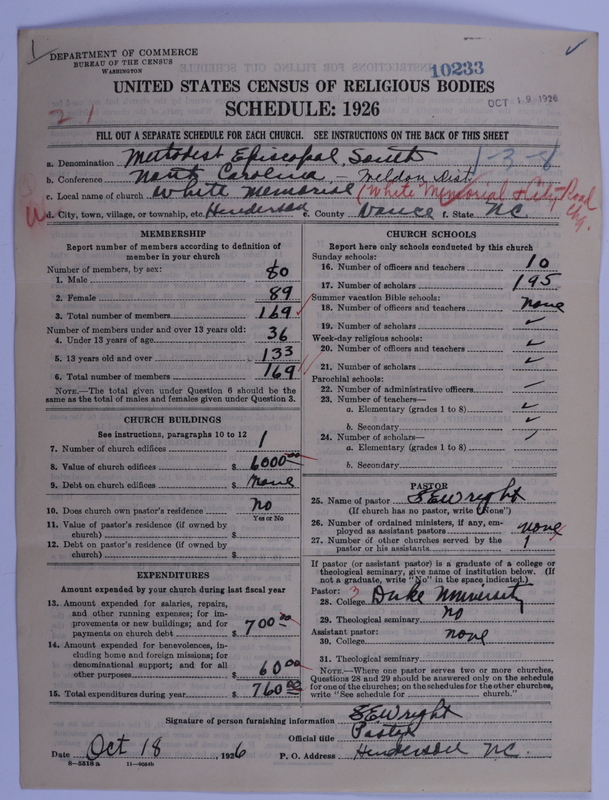 1
DEPARTMENT OF COMMERCE
BUREAU OF THE CENSUS
WASHINGTON
10233
OCT 19 1926
UNITED STATES CENSUS OF RELIGIOUS BODIES
SCHEDULE: 1926
21
FILL OUT A SEPARATE SCHEDULE FOR EACH CHURCH. SEE INSTRUCTIONS ON THE BACK OF THIS SHEET
a. Denomination Methodist Episcopal, South 1-3-8
b. Conference North Carolina - Weldon Dist
c. Local name of church White Memorial (White Memorial & City Road Chg.
d. City, town, village, or township, etc. Henderson e. County Vance f. State N.C.
MEMBERSHIP
Report number of members according to definition of
member in your church
Number of members, by sex:
1. Male 80
2. Female 89
3. Total number of members 169
Number of members under and over 13 years old:
4. Under 13 years of age 36
5. 13 years old and over 133
6. Total number of members 169
NOTE.—The total given under Question 6 should be
same as the total of males and females given under Question 3.
CHURCH BUILDINGS
See instructions, paragraphs 10 to 12
7. Number of church edifices 1
8. Value of church edifices $ 6000.00
9. Debt on church edifices $ none
10. Does church own pastor's residence no
Yes or No
11. Value of pastor's residence (if owned by
church) $
12. Debt on pastor's residence (if owned by
church) $
EXPENDITURES
Amount expended by your church during last fiscal year
13. Amount expended for salaries, repairs,
and other running expenses; for im-
provements or new buildings; and for
payments on church debt $ 700.00
14. Amount expended for benevolences, in-
cluding home and foreign missions; for
denominational support; and for all
other purposes $ 60.00
15. Total expenditures during year $ 760.00
CHURCH SCHOOLS
Report here only schools conducted by this church
Sunday schools:
16. Number of officers and teachers 10
17. Number of scholars 195
Summer vacation Bible schools:
18. Number of officers and teachers none
19. Number of scholars ✓
Week-day religious schools:
20. Number of officers and teachers ✓
21. Number of scholars ✓
Parochial schools:
22. Number of administrative officers
23. Number of teachers—
a. Elementary (grades 1 to 8) ✓
b. Secondary ✓
24. Number of scholars—
a. Elementary (grades 1 to 8)
b. Secondary
PASTOR
25. Name of pastor S E Wright
(If church has no pastor, write "None")
26. Number of ordained ministers, if any, em-
ployed as assistant pastors none
27. Number of other churches served by the
pastor or his assistants 1
If pastor (or assistant pastor) is a graduate of a college or
theological seminary, give name of institution below. (If
not a graduate, write "No" in the space indicated.)
Pastor: 3
28. College Duke University
29. Theological seminary no
Assistant pastor:
30. College none
31. Theological seminary
NOTE.—Where one pastor serves two or more churches,
Questions 28 and 29 should be answered only on the schedule
for one of the churches; on the schedules for the other churches,
write "See schedule for church."
Signature of person furnishing information S E Wright
Official title Pastor
Date Oct 18, 1926 P. O. Address Henderson N.C.
8-5518 a 11-9054b